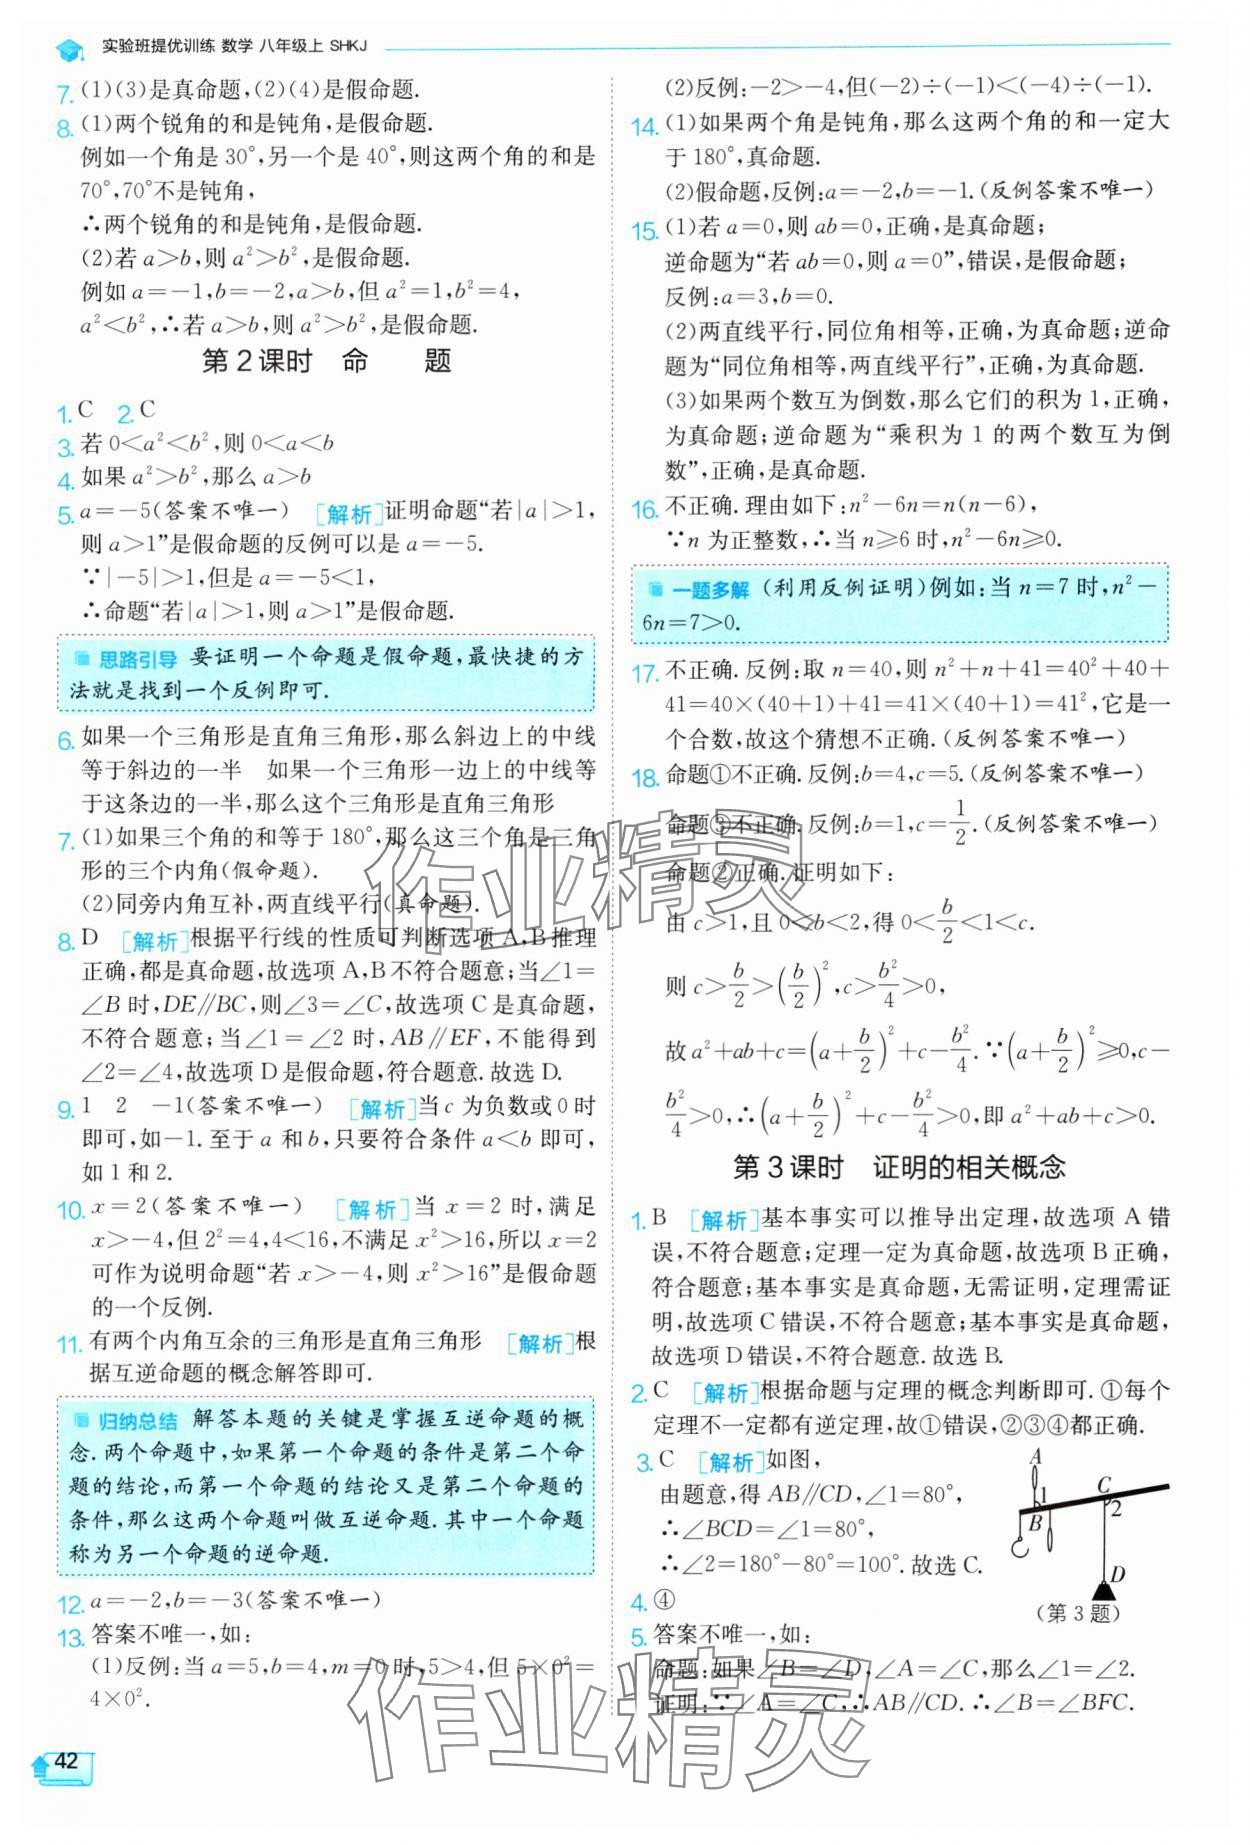 实验班提优训练 数学 八年级上 SHKJ
7. (1)(3)是真命题,(2)(4)是假命题.
8. (1)两个锐角的和是钝角,是假命题.
例如一个角是30°,另一个是40°,则这两个角的和是
70°,70°不是钝角,
∴两个锐角的和是钝角,是假命题.
(2)若a>b,则a²>b²,是假命题.
例如a=-1,b=-2,a>b,但a²=1,b²=4,
a²<b²,∴若a>b,则a²>b²,是假命题.
第2课时 命 题
1. C 2. C
3. 若0<a²<b²,则0<a<b
4. 如果a²>b²,那么a>b
5. a=-5(答案不唯一) [解析]证明命题“若|a|>1,
则a>1”是假命题的反例可以是a=-5.
∵|-5|>1,但是a=-5<1,
∴命题“若|a|>1,则a>1”是假命题.
思路引导 要证明一个命题是假命题,最快捷的方
法就是找到一个反例即可.
6. 如果一个三角形是直角三角形,那么斜边上的中线
等于斜边的一半 如果一个三角形一边上的中线等
于这条边的一半,那么这个三角形是直角三角形
7. (1)如果三个角的和等于180°,那么这三个角是三角
形的三个内角(假命题).
(2)同旁内角互补,两直线平行(真命题).
8. D [解析]根据平行线的性质可判断选项A,B推理
正确,都是真命题,故选项A,B不符合题意;当∠1=
∠B时,DE∥BC,则∠3=∠C,故选项C是真命题,
不符合题意;当∠1=∠2时,AB∥EF,不能得到
∠2=∠4,故选项D是假命题,符合题意.故选D.
9. 1 2 -1(答案不唯一) [解析]当c为负数或0时
即可,如-1.至于a和b,只要符合条件a<b即可,
如1和2.
10. x=2(答案不唯一) [解析]当x=2时,满足
x>-4,但2²=4,4<16,不满足x²>16,所以x=2
可作为说明命题“若x>-4,则x²>16”是假命题
的一个反例.
11. 有两个内角互余的三角形是直角三角形 [解析]根
据互逆命题的概念解答即可.
归纳总结 解答本题的关键是掌握互逆命题的概
念.两个命题中,如果第一个命题的条件是第二个命
题的结论,而第一个命题的结论又是第二个命题的
条件,那么这两个命题叫做互逆命题.其中一个命题
称为另一个命题的逆命题.
12. a=-2,b=-3(答案不唯一)
13. 答案不唯一,如:
(1)反例:当a=5,b=4,m=0时,5>4,但5×0²=
4×0².
(2)反例:-2>-4,但(-2)÷(-1)<(-4)÷(-1).
14. (1)如果两个角是钝角,那么这两个角的和一定大
于180°,真命题.
(2)假命题,反例:a=-2,b=-1.(反例答案不唯一)
15. (1)若a=0,则ab=0,正确,是真命题;
逆命题为“若ab=0,则a=0”,错误,是假命题;
反例:a=3,b=0.
(2)两直线平行,同位角相等,正确,为真命题;逆命
题为“同位角相等,两直线平行”,正确,为真命题.
(3)如果两个数互为倒数,那么它们的积为1,正确,
为真命题;逆命题为“乘积为1的两个数互为倒
数”,正确,是真命题.
16. 不正确.理由如下:n²-6n=n(n-6),
∵n为正整数,∴当n≥6时,n²-6n≥0.
一题多解 (利用反例证明)例如:当n=7时,n²-
6n=7>0.
17. 不正确.反例:取n=40,则n²+n+41=40²+40+
41=40×(40+1)+41=41×(40+1)=41²,它是一
个合数,故这个猜想不正确.(反例答案不唯一)
18. 命题①不正确.反例:b=4,c=5.(反例答案不唯一)
命题③不正确.反例:b=1,c=1/2.(反例答案不唯一)
命题②正确.证明如下:
由c>1,且0<b<2,得0<b/2<1<c.
则c>b/2>(b/2)²,c>b²/4>0,
故a²+ab+c=(a+b/2)²+c-b²/4.∵(a+b/2)²≥0,c-
b²/4>0,∴(a+b/2)²+c-b²/4>0,即a²+ab+c>0.
第3课时 证明的相关概念
1. B [解析]基本事实可以推导出定理,故选项A错
误,不符合题意;定理一定为真命题,故选项B正确,
符合题意;基本事实是真命题,无需证明,定理需证
明,故选项C错误,不符合题意;基本事实是真命题,
故选项D错误,不符合题意.故选B.
2. C [解析]根据命题与定理的概念判断即可.①每个
定理不一定都有逆定理,故①错误,②③④都正确.
3. C [解析]如图,
由题意,得AB∥CD,∠1=80°,
∴∠BCD=∠1=80°,
∴∠2=180°-80°=100°.故选C.
A
1
B
C
2
D
(第3题)
4. ④
5. 答案不唯一,如:
命题:如果∠B=∠D,∠A=∠C,那么∠1=∠2.
证明:∵∠A=∠C,∴AB∥CD.∴∠B=∠BFC.
作业精灵
作业精灵
42